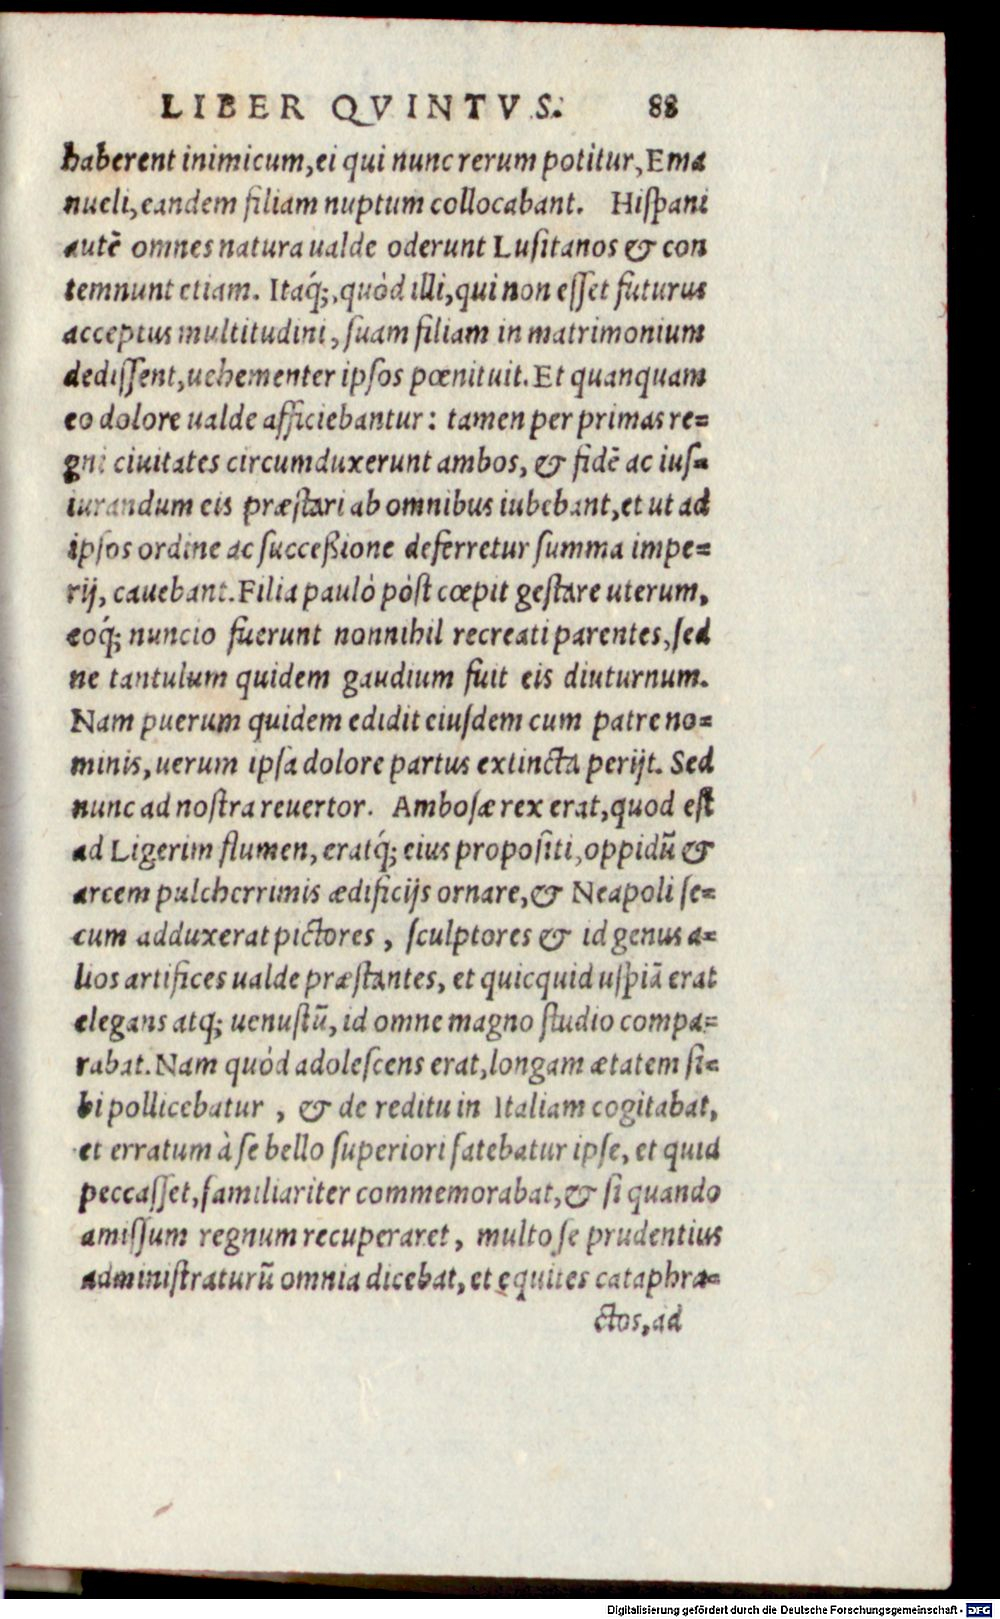 LIBER QVINTVS. 88
haberent inimicum, ei qui nunc rerum potitur, Ema
nueli, eandem filiam nuptum collocabant. Hiſpani
autē omnes natura ualde oderunt Luſitanos & con
temnunt etiam. Itaq́;, quòd illi, qui non eſſet futurus
acceptus multitudini, ſuam filiam in matrimonium
dediſſent, uehementer ipſos pœnituit. Et quanquam
eo dolore ualde afficiebantur: tamen per primas re=
gni ciuitates circumduxerunt ambos, & fidē ac iuſ=
iurandum eis præſtari ab omnibus iubebant, et ut ad
ipſos ordine ac succeßione deferretur ſumma impe=
rij, cauebant. Filia pauló pòst cœpit geſtare uterum,
eoq́; nuncio fuerunt nonnihil recreati parentes, ſed
ne tantulum quidem gaudium fuit eis diuturnum.
Nam puerum quidem edidit eiuſdem cum patre no=
minis, uerum ipſa dolore partus extincta perijt. Sed
nunc ad noſtra reuertor. Amboſæ rex erat, quod eſt
ad Ligerim flumen, eratq́; eius propoſiti, oppidū &
arcem pulcherrimis ædificijs ornare, & Neapoli ſe=
cum adduxerat pictores, ſculptores & id genus a=
lios artifices ualde præſtantes, et quicquid uſpiā erat
elegans atq; uenuſtū, id omne magno ſtudio compa=
rabat. Nam quòd adoleſcens erat, longam ætatem ſi=
bi pollicebatur, & de reditu in Italiam cogitabat,
et erratum à ſe bello ſuperiori fatebatur ipſe, et quid
peccaſſet, familiariter commemorabat, & ſi quando
amiſſum regnum recuperaret, multo ſe prudentius
adminiſtraturū omnia dicebat, et equites cataphra=
ctos, ad
Digitalisierung gefördert durch die Deutsche Forschungsgemeinschaft - DFG